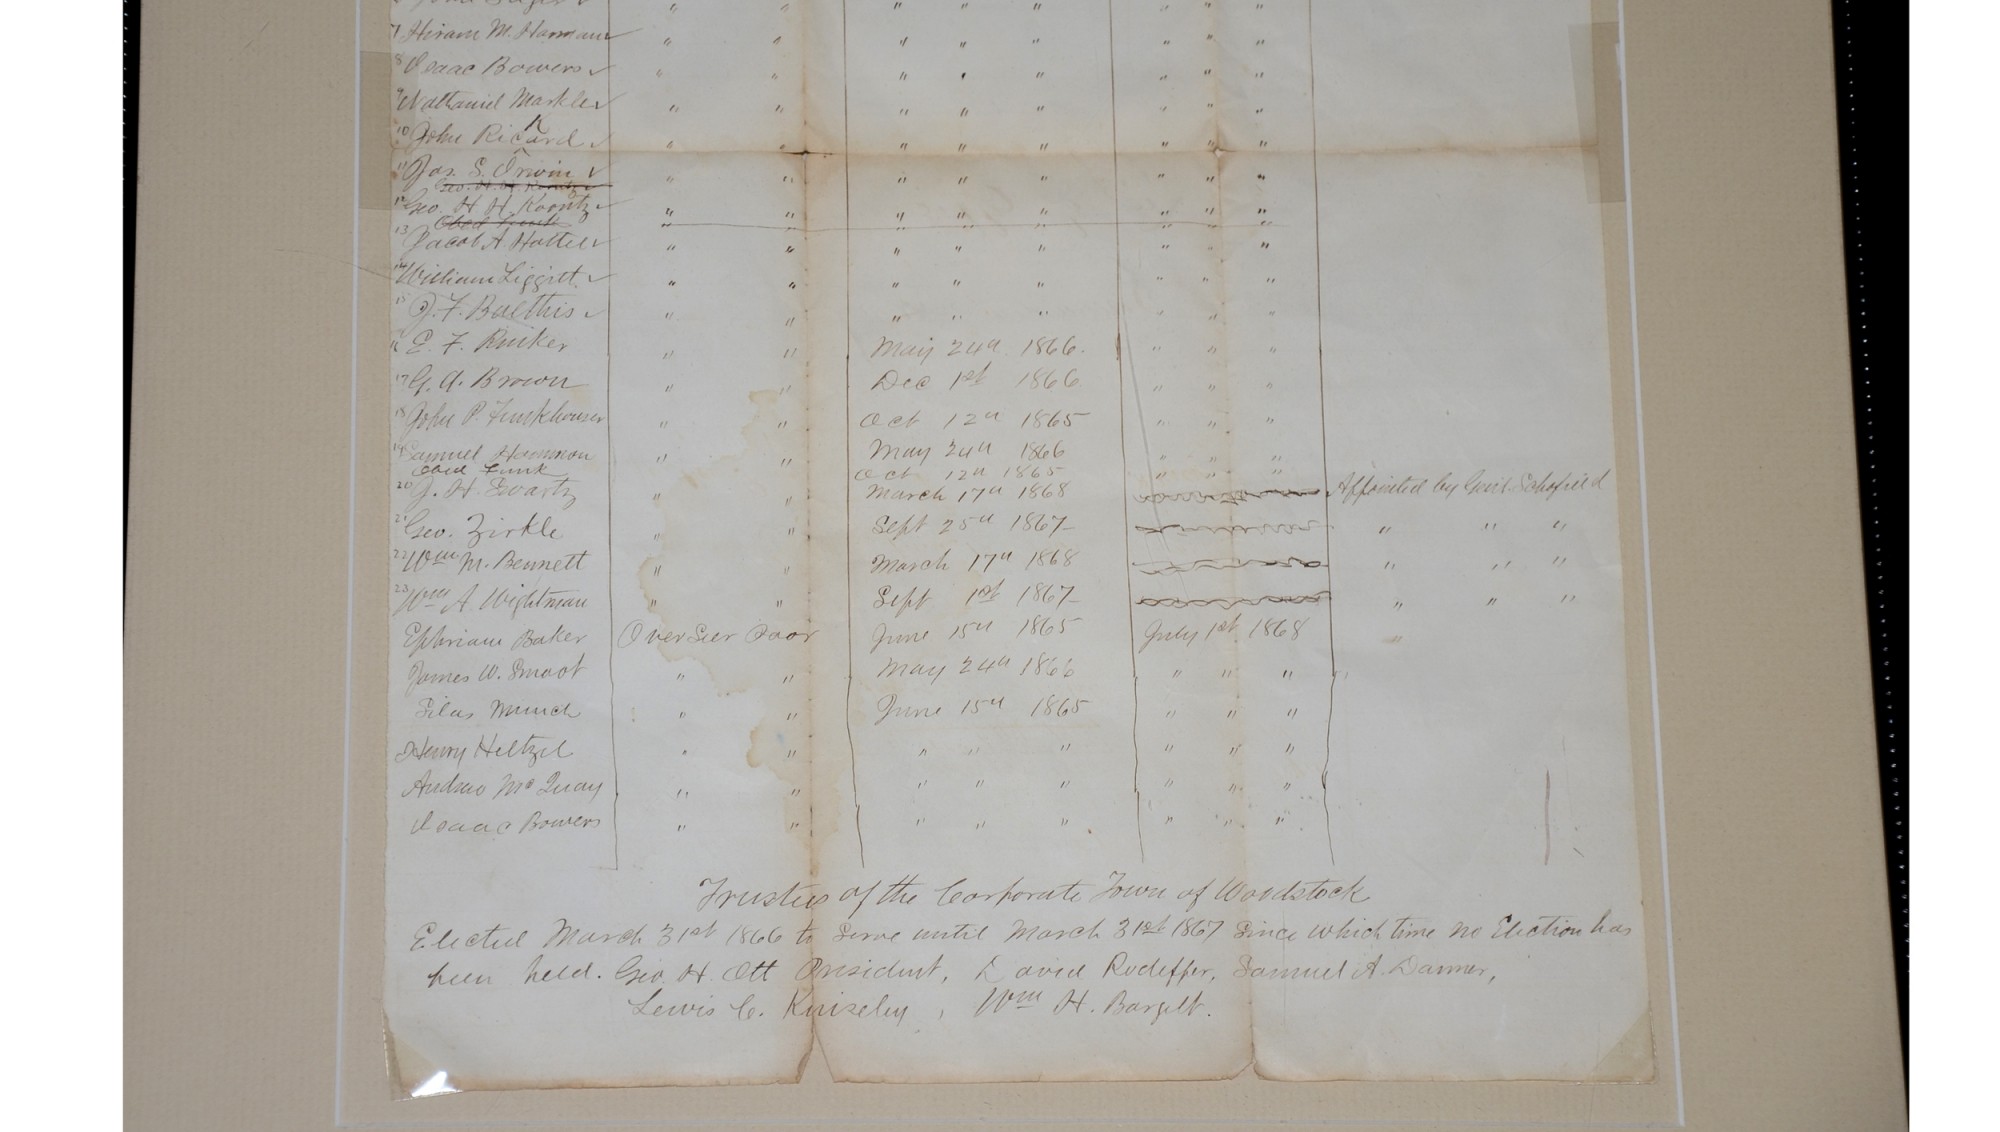 7 Hiram M. Harman ✓ " " " " " " " "
8 Isaac Bowers ✓ " " " " " " " "
9 Nathaniel Markle ✓ " " " " " " " "
10 John Rickard ✓ " " " " " " " "
11 Jas. S. Irwin ✓ " " " " " " " "
Geo. H. H. Koontz ✓
12 Geo. H H Koontz ✓ " " " " " " " "
Obed Funk " " " " " " " "
13 Jacob A. Hottel ✓ " " " " " " " "
14 William Liggitt ✓ " " " " " " " "
15 J. F. Balthis ✓ " " " " " " " "
16 E. F. Ruiker " " May 24th 1866. " " "
17 G. A. Brown " " Dec 1st 1866 " " "
18 John P. Funkhouser " " Oct 12th 1865 " " "
19 Samuel Hammon " " May 24th 1866 " " "
Obed Funk Oct 12th 1865 " " "
20 J. H. Swartz " " March 17th 1868 Appointed by Genl. Schofield
21 Geo. Zirkle " " Sept 25th 1867 " " "
22 Wm M. Bennett " " March 17th 1868 " " "
23 Wm A. Wightman " " Sept 1st 1867 " " "
Ephriam Baker Over Seer Poor June 15th 1865 July 1st 1868 "
James W. Smoot " " May 24th 1866 " " " "
Silas Munch " " June 15th 1865 " " "
Henry Heltzel " " " " " " " "
Andrew McQuay " " " " " " " "
Isaac Bowers " " " " " " " "
Trustees of the Corporate Town of Woodstock
Elected March 31st 1866 to Serve until March 31st 1867 Since which time no Election has
been held. Geo. H. Ott President, David Rodeffer, Samuel A. Danner,
Lewis C. Kniseley, Wm H. Bargelt.